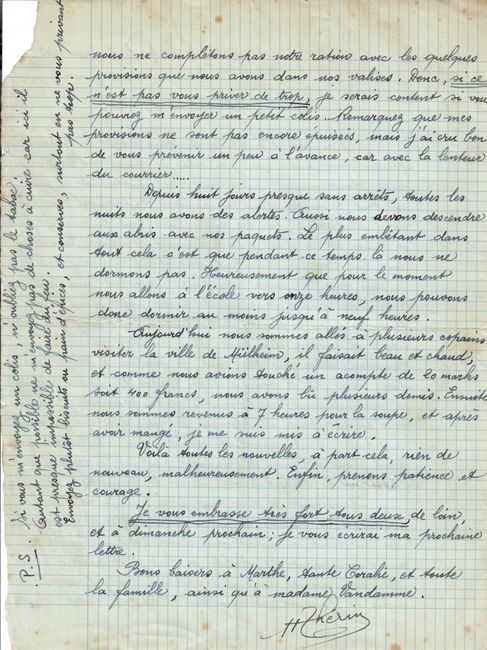 nous ne complétons pas notre ration avec les quelques
provisions que nous avons dans nos valises. Donc, si ce
n'est pas vous priver de trop, je serais content si vous
pouvez m'envoyer un petit colis. Remarquez que mes
provisions ne sont pas encore épuisées, mais j'ai cru bon
de vous prévenir un peu à l'avance, car avec la lenteur
du courrier.....
Depuis huit jours presque sans arrêts, toutes les
nuits nous avons des alertes. Aussi nous devons descendre
aux abris avec nos paquets. Le plus embêtant dans
tout cela c'est que pendant ce temps là nous ne
dormons pas. Heureusement que pour le moment
nous allons à l'école vers onze heures, nous pouvons
donc dormir au moins jusqu'à neuf heures.
Aujourd'hui nous sommes allés à plusieurs copains
visiter la ville de Mülheim, il faisait beau et chaud,
et comme nous avions touché un acompte de 20 marks
soit 400 francs, nous avons bu plusieurs demis. Ensuite
nous sommes revenus à 7 heures pour la soupe, et après
avoir mangé, je me suis mis à écrire.
Voilà toutes les nouvelles, à part cela, rien de
nouveau, malheureusement. Enfin, prenons patience et
courage.
Je vous embrasse très fort tous deux, de loin,
et à dimanche prochain; je vous écrirai ma prochaine
lettre.
Bons baisers à Marthe, tante Coralie, et toute
la famille, ainsi qu'à madame Vandamme.
H Thérin
P.S. Si vous m'envoyez un colis, n'oubliez pas le tabac.
Autant que possible ne m'envoyez pas de choses à cuire car ici il
est presque impossible de faire du feu.
Envoyez plutôt biscuits ou pain d'épices, et conserves, surtout en ne vous privant
pas trop.